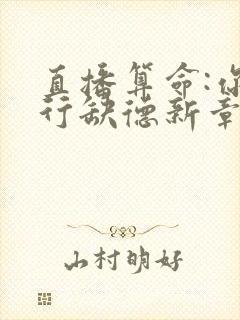 直播算命:你
行缺德新章
山村明好